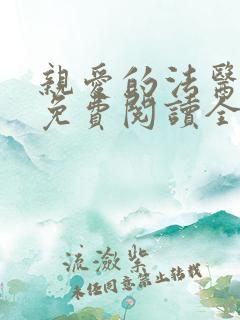 親愛的法醫
免費閱讀全
流瀲紫
未经同意禁止转载